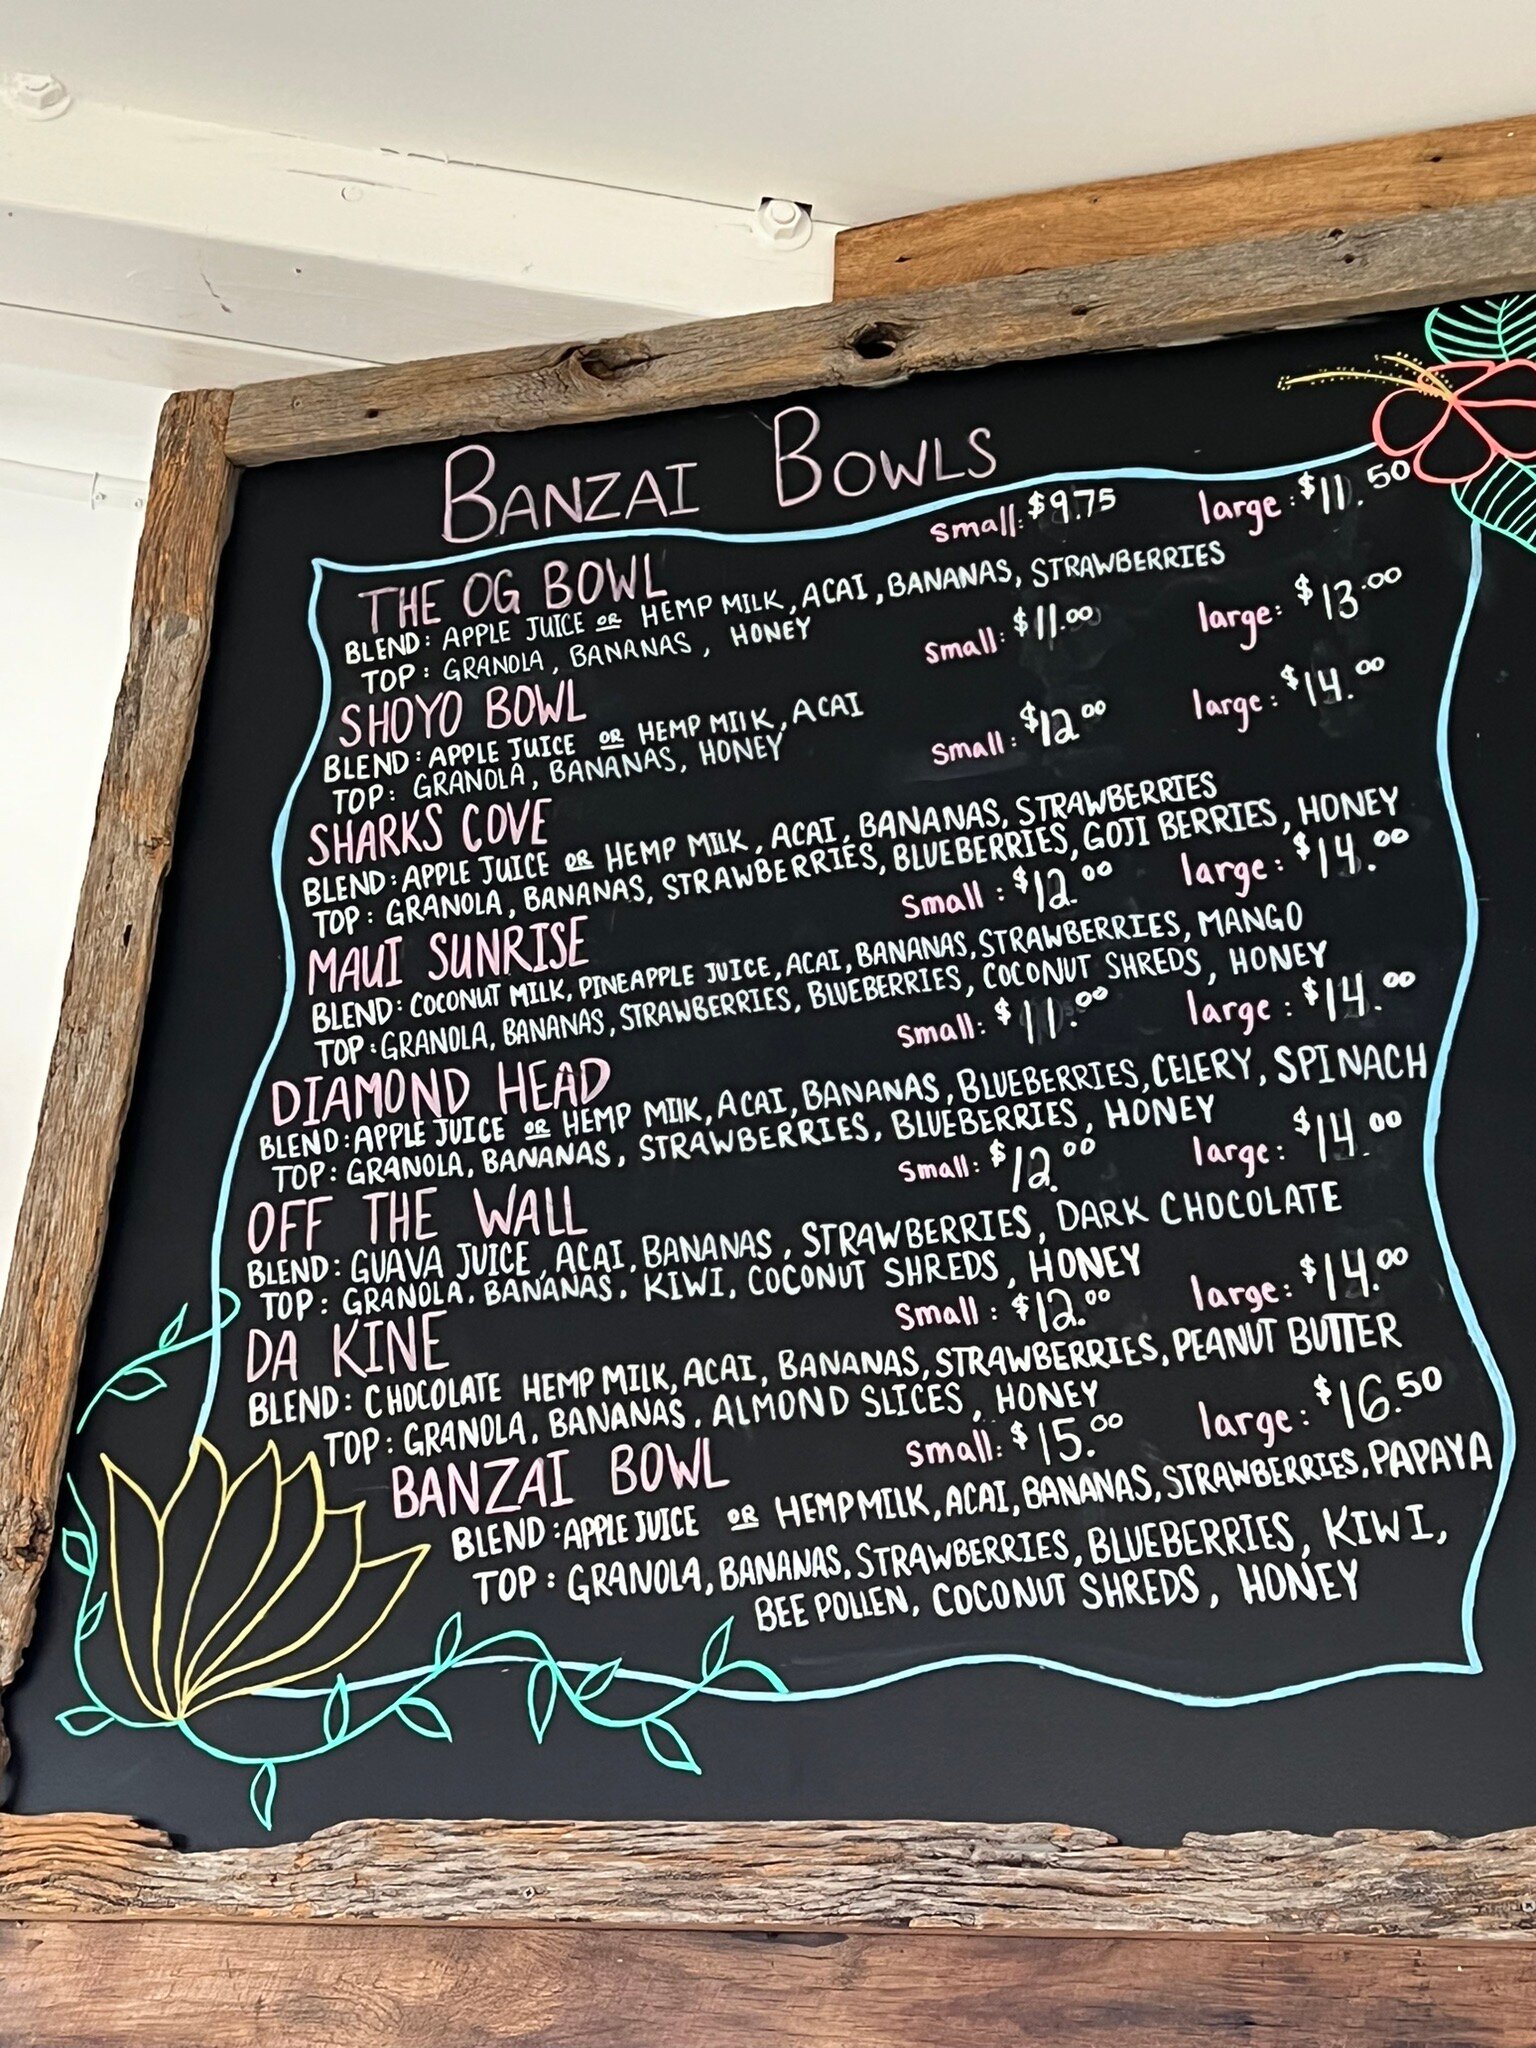 BANZAI BOWLS
THE OG BOWL small: $9.75 large: $11.50
BLEND: APPLE JUICE OR HEMP MILK, ACAI, BANANAS, STRAWBERRIES
TOP: GRANOLA, BANANAS, HONEY
SHOYO BOWL small: $11.00 large: $13.00
BLEND: APPLE JUICE OR HEMP MILK, ACAI
TOP: GRANOLA, BANANAS, HONEY
SHARKS COVE small: $12.00 large: $14.00
BLEND: APPLE JUICE OR HEMP MILK, ACAI, BANANAS, STRAWBERRIES
TOP: GRANOLA, BANANAS, STRAWBERRIES, BLUEBERRIES, GOJI BERRIES, HONEY
MAUI SUNRISE small: $12.00 large: $14.00
BLEND: COCONUT MILK, PINEAPPLE JUICE, ACAI, BANANAS, STRAWBERRIES, MANGO
TOP: GRANOLA, BANANAS, STRAWBERRIES, BLUEBERRIES, COCONUT SHREDS, HONEY
DIAMOND HEAD small: $11.00 large: $14.00
BLEND: APPLE JUICE OR HEMP MILK, ACAI, BANANAS, BLUEBERRIES, CELERY, SPINACH
TOP: GRANOLA, BANANAS, STRAWBERRIES, BLUEBERRIES, HONEY
OFF THE WALL small: $12.00 large: $14.00
BLEND: GUAVA JUICE, ACAI, BANANAS, STRAWBERRIES, DARK CHOCOLATE
TOP: GRANOLA, BANANAS, KIWI, COCONUT SHREDS, HONEY
DA KINE small: $12.00 large: $14.00
BLEND: CHOCOLATE HEMP MILK, ACAI, BANANAS, STRAWBERRIES, PEANUT BUTTER
TOP: GRANOLA, BANANAS, ALMOND SLICES, HONEY
BANZAI BOWL small: $15.00 large: $16.50
BLEND: APPLE JUICE OR HEMP MILK, ACAI, BANANAS, STRAWBERRIES, PAPAYA
TOP: GRANOLA, BANANAS, STRAWBERRIES, BLUEBERRIES, KIWI,
BEE POLLEN, COCONUT SHREDS, HONEY